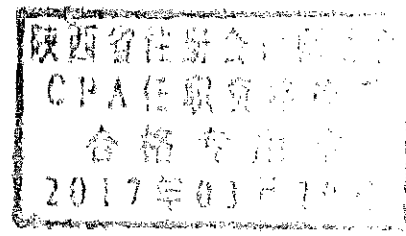 陕西省注册会计师协会
CPA任职资格检查
合格专用章
2017年03月